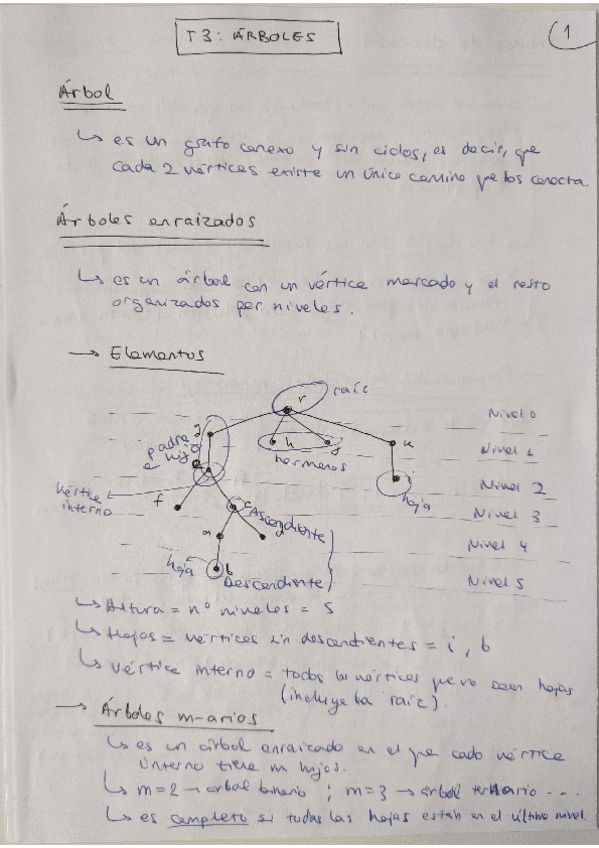 T3: ÁRBOLES
1
Árbol
↳ es un grafo conexo y sin ciclos, es decir, que
cada 2 vértices existe un único camino que los conecta.
Árboles enraizados
↳ es un árbol con un vértice marcado y el resto
organizados por niveles.
→ Elementos
r raíz
Nivel 0
padre
e hijo
h j
k
hermanos
Nivel 1
vértice
interno
i
hoja
Nivel 2
f
c Ascendiente
Nivel 3
a d
Nivel 4
hoja
b
Descendiente
Nivel 5
↳ Altura = nº niveles = 5
↳ Hojas = vértices sin descendientes = i, b
↳ Vértice interno = todos los vértices que no sean hojas
(incluye la raíz).
→ Árboles m-arios
↳ es un árbol enraizado en el que cada vértice
interno tiene m hijos.
↳ m=2 → árbol binario ; m=3 → árbol ternario ...
↳ es completo si todas las hojas están en el último nivel.